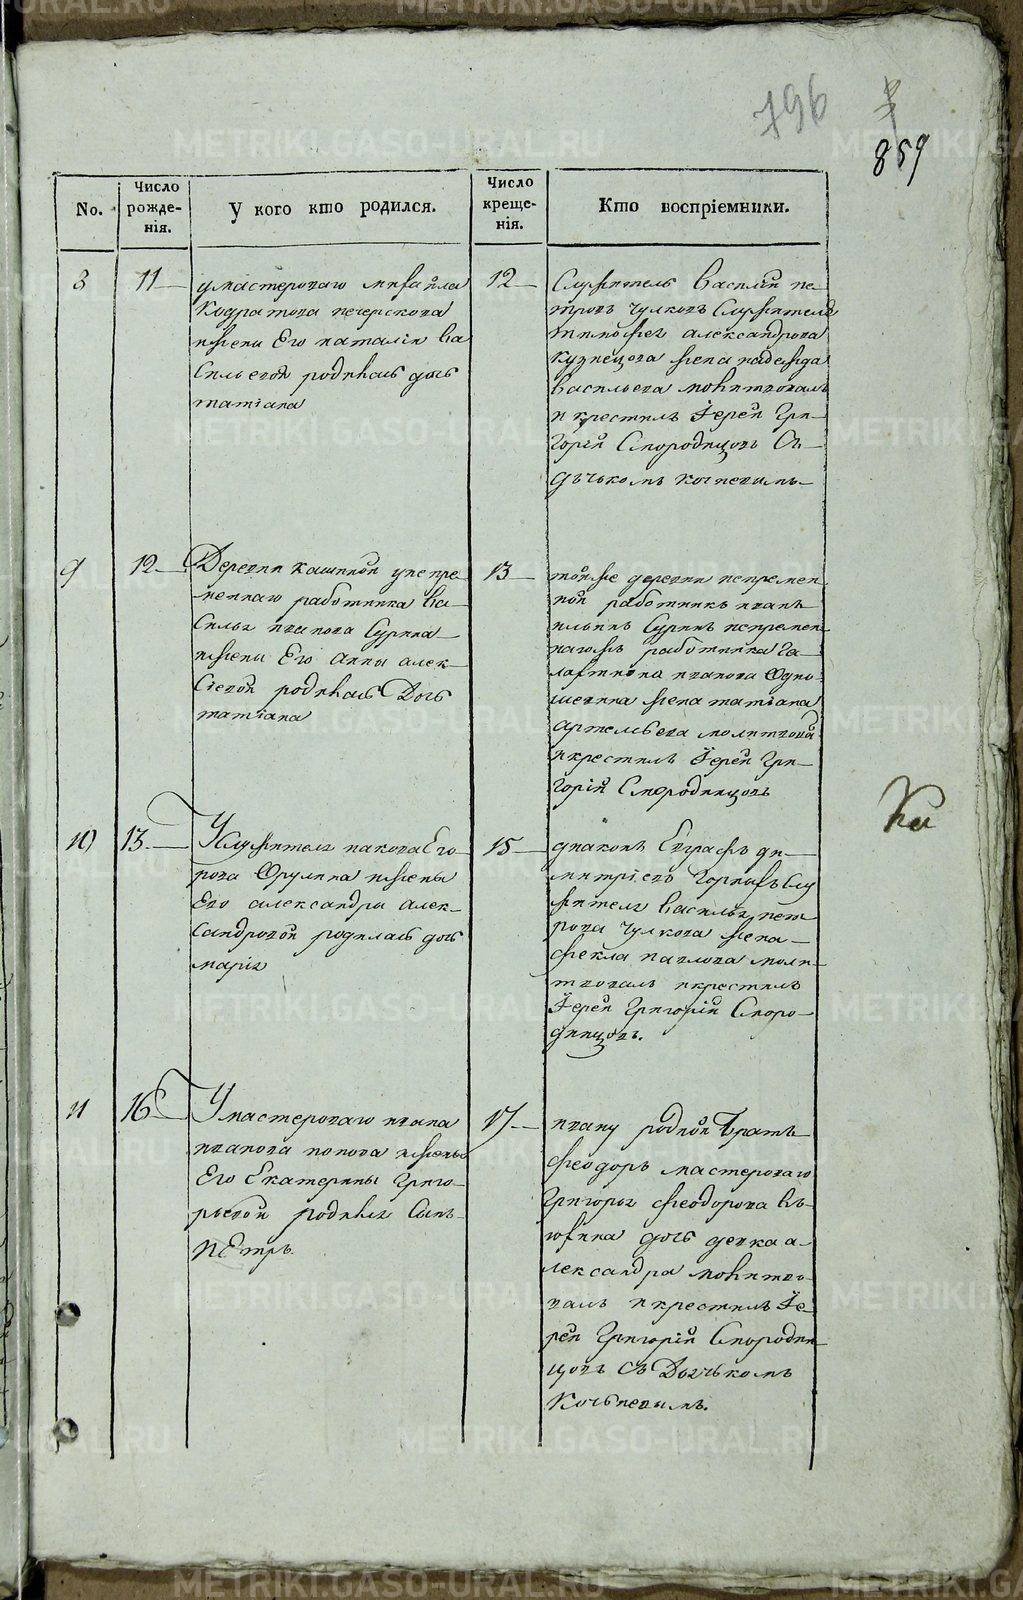 796
859
No.
Число рожде-нія.
У кого кто родился.
Число креще-нія.
Кто воспріемники.
8
11
умастероваго михайла
Кодратова печерскова
ижены Его наталіи ва
Сильевой родилась дочь
татіана
12
Служитель Василій пе-
тровъ чулковъ Служителя
тимофея александрова
кузнецова жена надежда
Васильева молитвовалъ
и крестилъ Іерей Гри-
горій Смородинцовъ Съ-
дьячькомъ
9
12
Деревни кашиной унепре-
меннаго работника Ва-
Силья иванова Сурина
ижены Его анны алек-
Сіевой родилась Дочь
татіана
13
тойже деревни непремен
ной работникъ иванъ
ильинъ Суринъ непремен-
нагожъ работника Га-
лахтиона иванова
жена татіана
артемьева молитвовалъ
икрестилъ Іерей Гри-
горій Смородинцовъ
10
13
Услужителя иакова Его-
рова Фрулина ижены
Его александры алек-
Сандровой родилась дочь
маріа
15
диаконъ Евграфъ ди-
митріевъ Слу
жителя Василья пет
рова чулкова жена
фекла павлова моли-
твовалъ икрестилъ
Іерей Григорій Сморо-
динцовъ.
11
16
Умастероваго ивана
иванова попова ижены
Его Екатерины Григо-
рьевой родился Сынъ
пЕтръ
17
ивану родной братъ
феодоръ мастероваго
Григорья феодорова
дочь девка а-
лександра молитво-
валъ икрестилъ Іе-
рей Григорій Смородин
цовъ Съ Дьячькомъ
METRIKI.GASO-URAL.RU